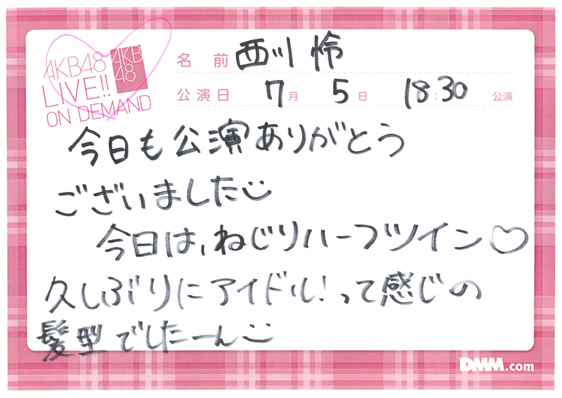 AKB48
LIVE!!
ON DEMAND
AKB
48
名前 西川 怜
公演日 7月 5日 18:30 公演
今日も公演ありがとう
ございました
今日は、ねじりハーフツイン♡
久しぶりにアイドル!って感じの
髪型でしたーん
DMM.com